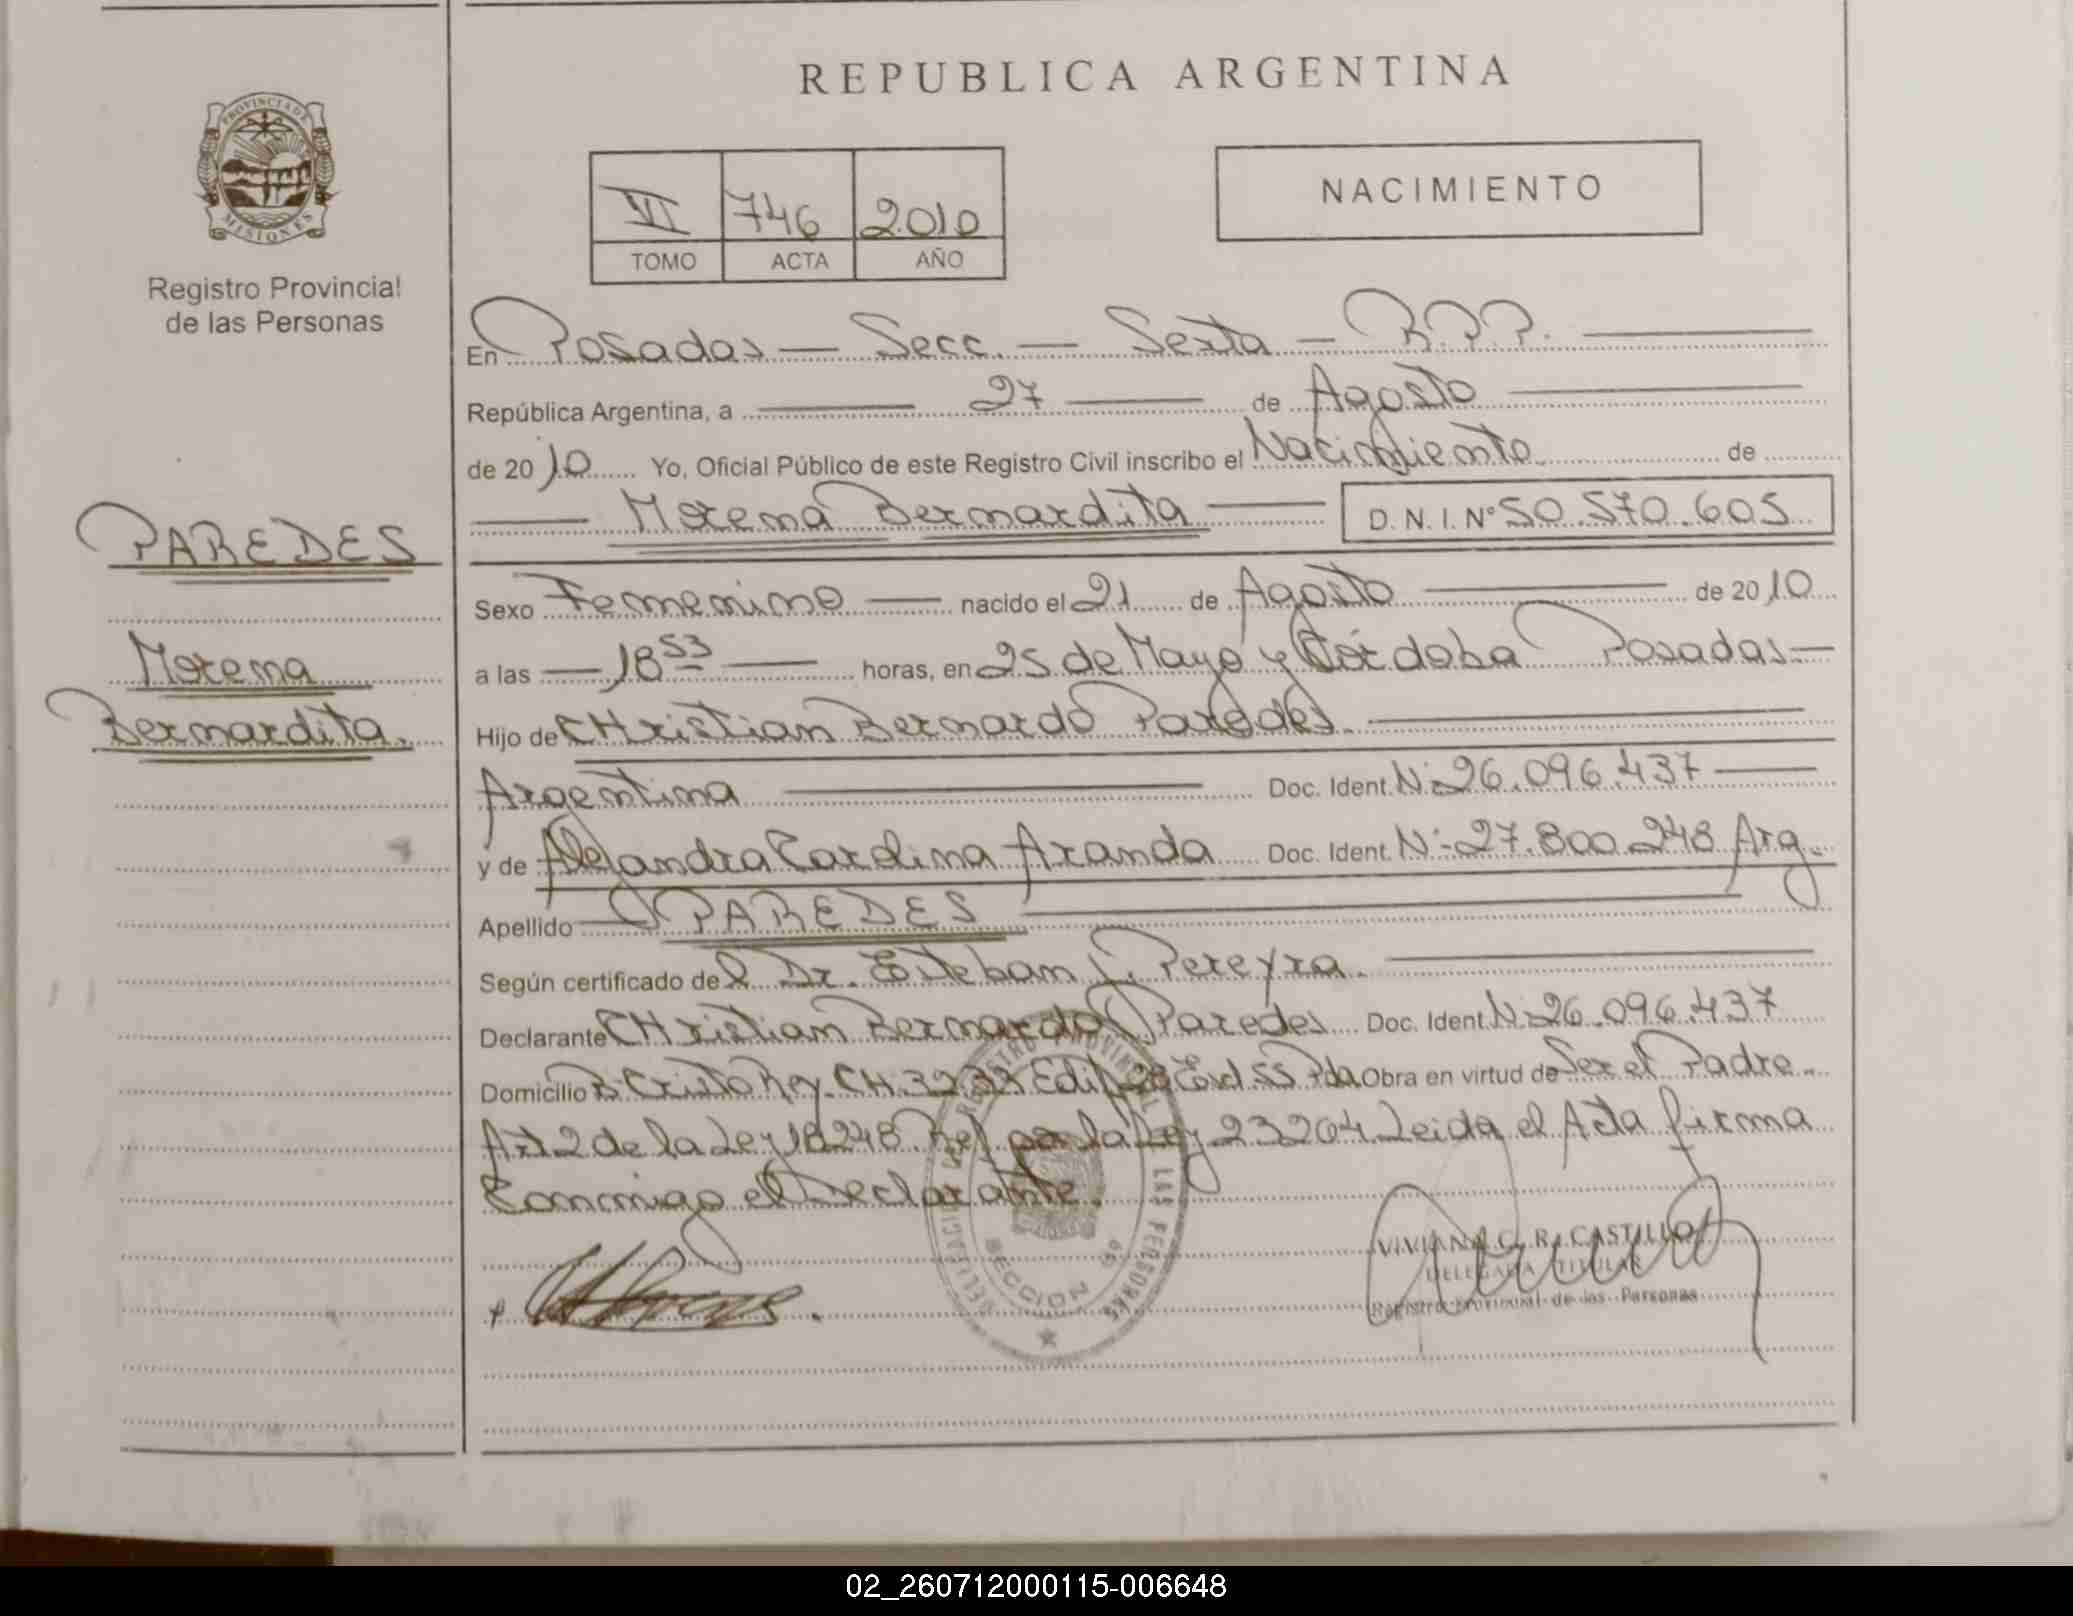 REPUBLICA ARGENTINA
PROVINCIA DE
MISIONES
Registro Provincial
de las Personas
VI 746 2010
TOMO ACTA AÑO
NACIMIENTO
En Posadas — Secc. — Sexta — R.P.P.
República Argentina, a 27 de Agosto
de 2010 Yo, Oficial Público de este Registro Civil inscribo el Nacimiento de
Morena Bernardita D.N.I. Nº 50.570.605
PAREDES
Morena
Bernardita.
Sexo Femenino nacido el 21 de Agosto de 2010
a las 18 53 horas, en 25 de Mayo y Córdoba Posadas
Hijo de CHristian Bernardo Paredes.
Argentina Doc. Ident. Nº 26.096.437
y de Alejandra Carolina Aranda Doc. Ident. Nº 27.800.248 Arg.
Apellido PAREDES
Según certificado del Dr. Esteban J. Pereyra.
Declarante CHristian Bernardo Paredes Doc. Ident. Nº 26.096.437
Domicilio Bº Cristo Rey. CH. 32.33 Edif. Pda Obra en virtud de Ser el Padre.
Art 2 de la Ley 18248 Ref. por la Ley 23264 Leida el Acta firma
Conmigo el Declarante.
REGISTRO PROVINCIAL DE LAS PERSONAS
SECCION 6ª
VIVIANA C. R. CASTILLO
DELEGADA TITULAR
Registro Provincial de las Personas
02_260712000115-006648